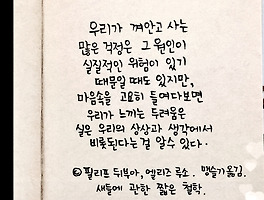 우리가 껴안고 사는
많은 걱정은 그 원인이
실질적인 위험이 있기
때문일 때도 있지만,
마음속을 고요히 들여다보면
우리가 느끼는 두려움은
실은 우리의 상상과 생각에서
비롯된다는 걸 알 수 있다.
©필리프 뒤부아, 엘리즈 루소. 맹슬기 옮김.
새들에 관한 짧은 철학.